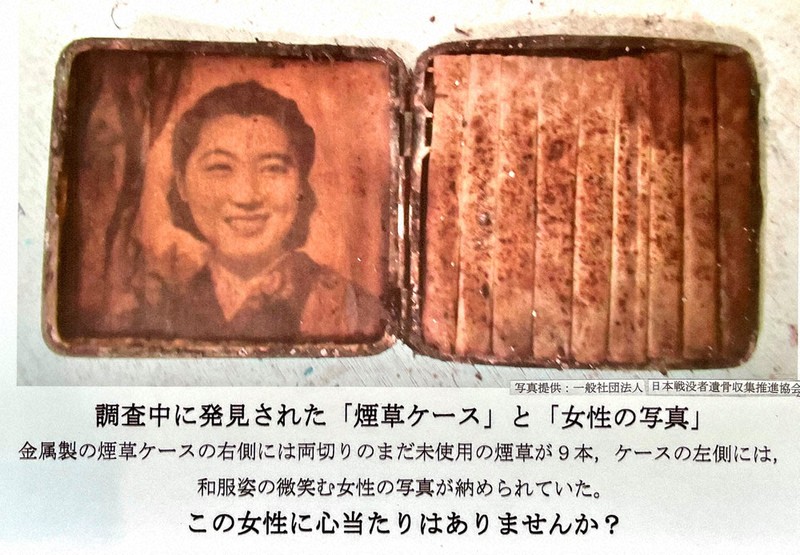 写真提供：一般社団法人 日本戦没者遺骨収集推進協会
調査中に発見された「煙草ケース」と「女性の写真」
金属製の煙草ケースの右側には両切りのまだ未使用の煙草が９本，ケースの左側には，
和服姿の微笑む女性の写真が納められていた。
この女性に心当たりはありませんか？